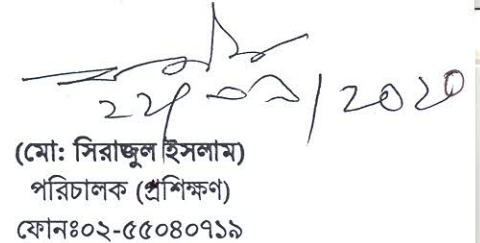 (মো: সিরাজুল ইসলাম)
পরিচালক (প্রশিক্ষণ)
ফোনঃ০২-৫৫০৪০৭১৯